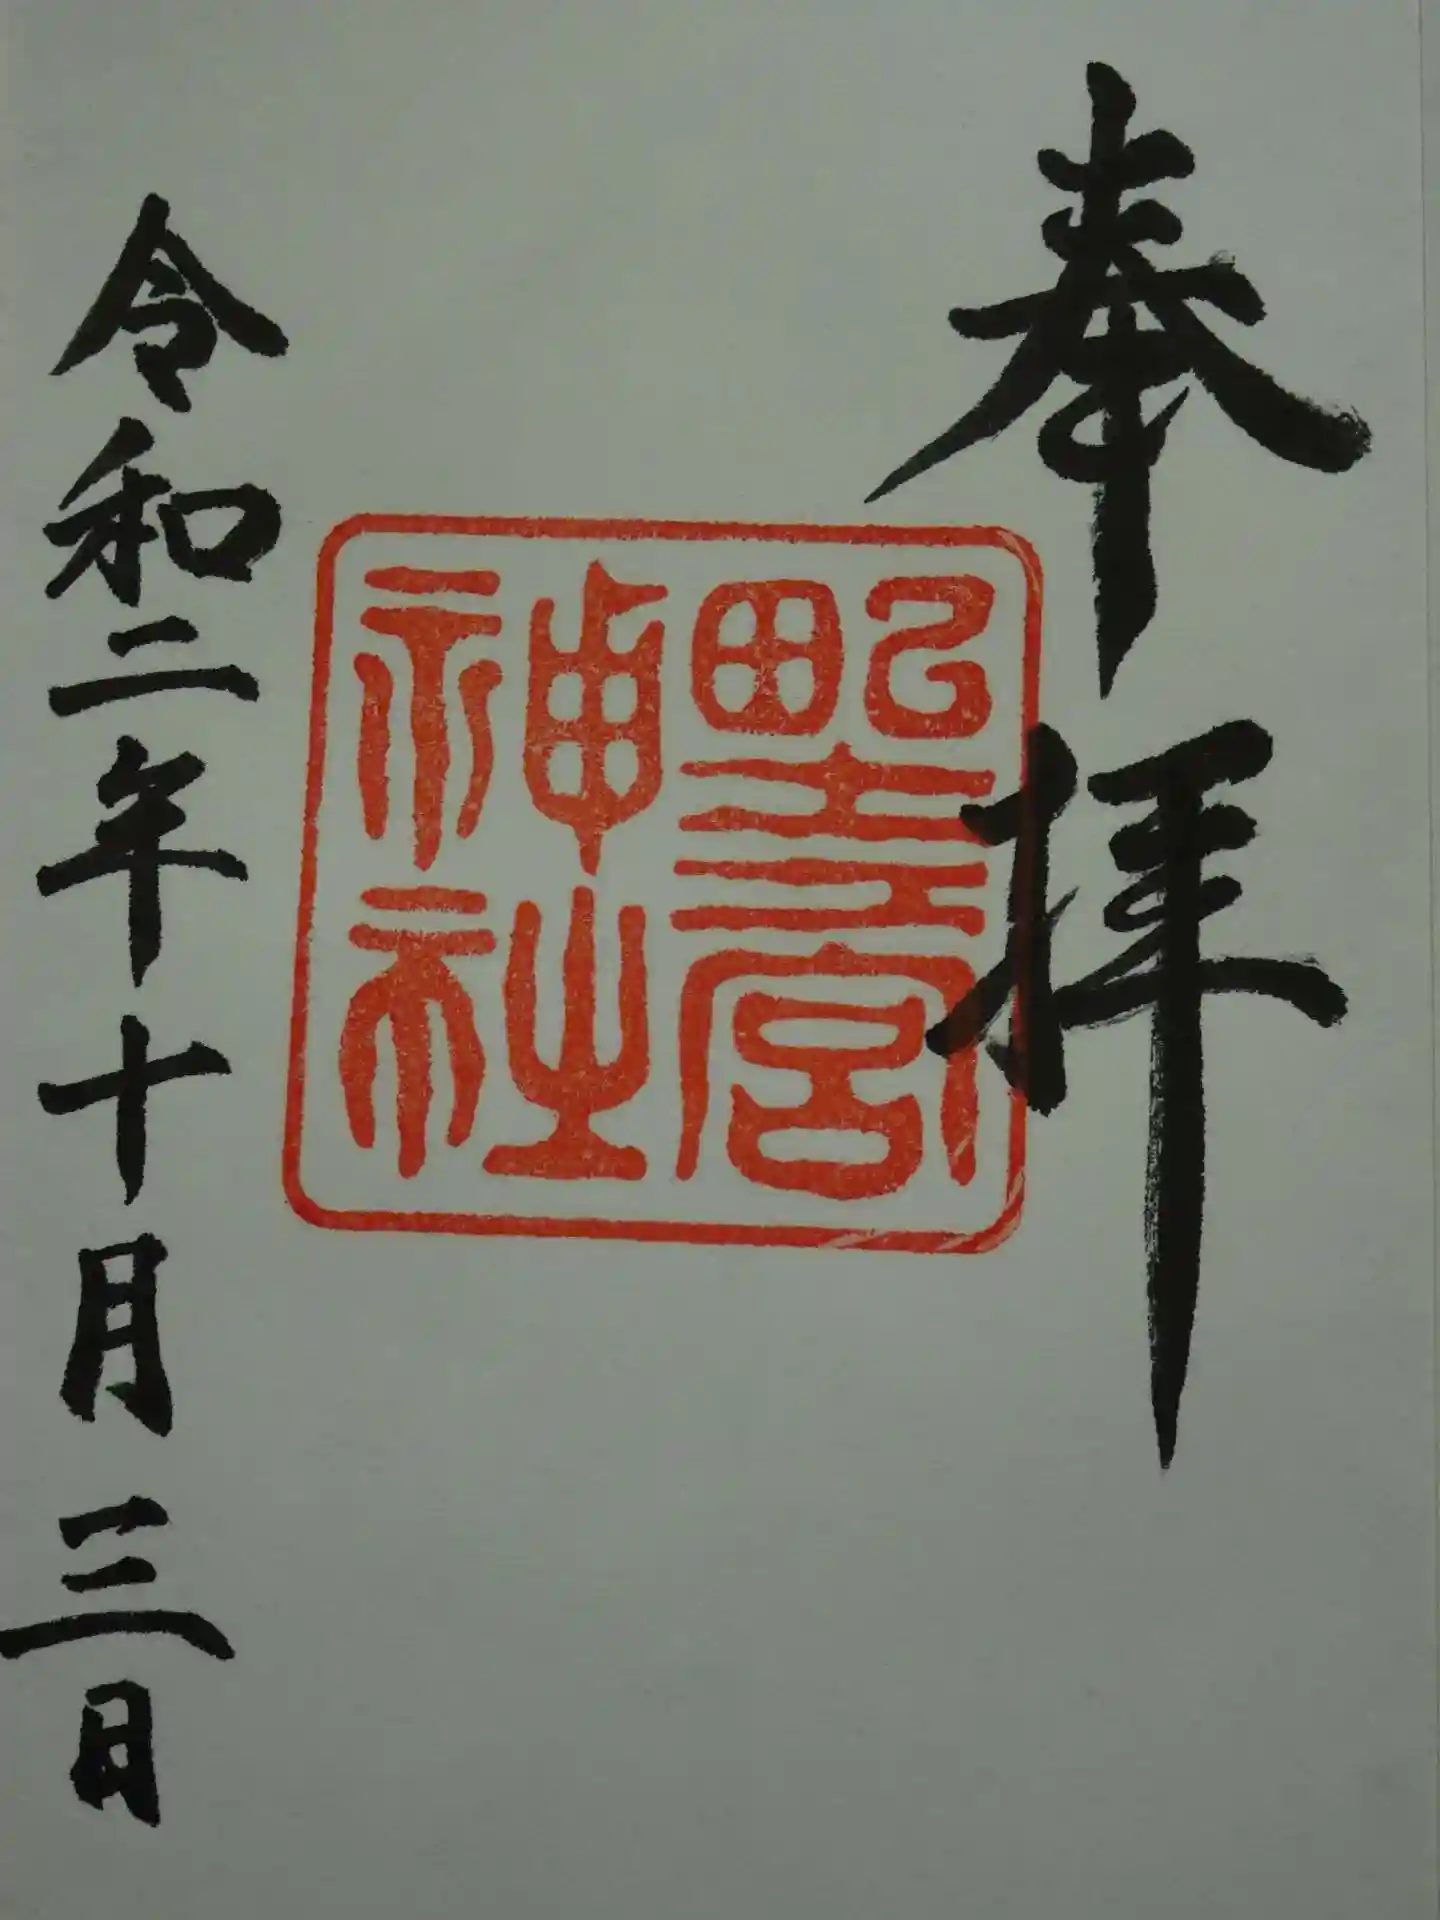 奉拝
野宮
神社
令和二年十月三日